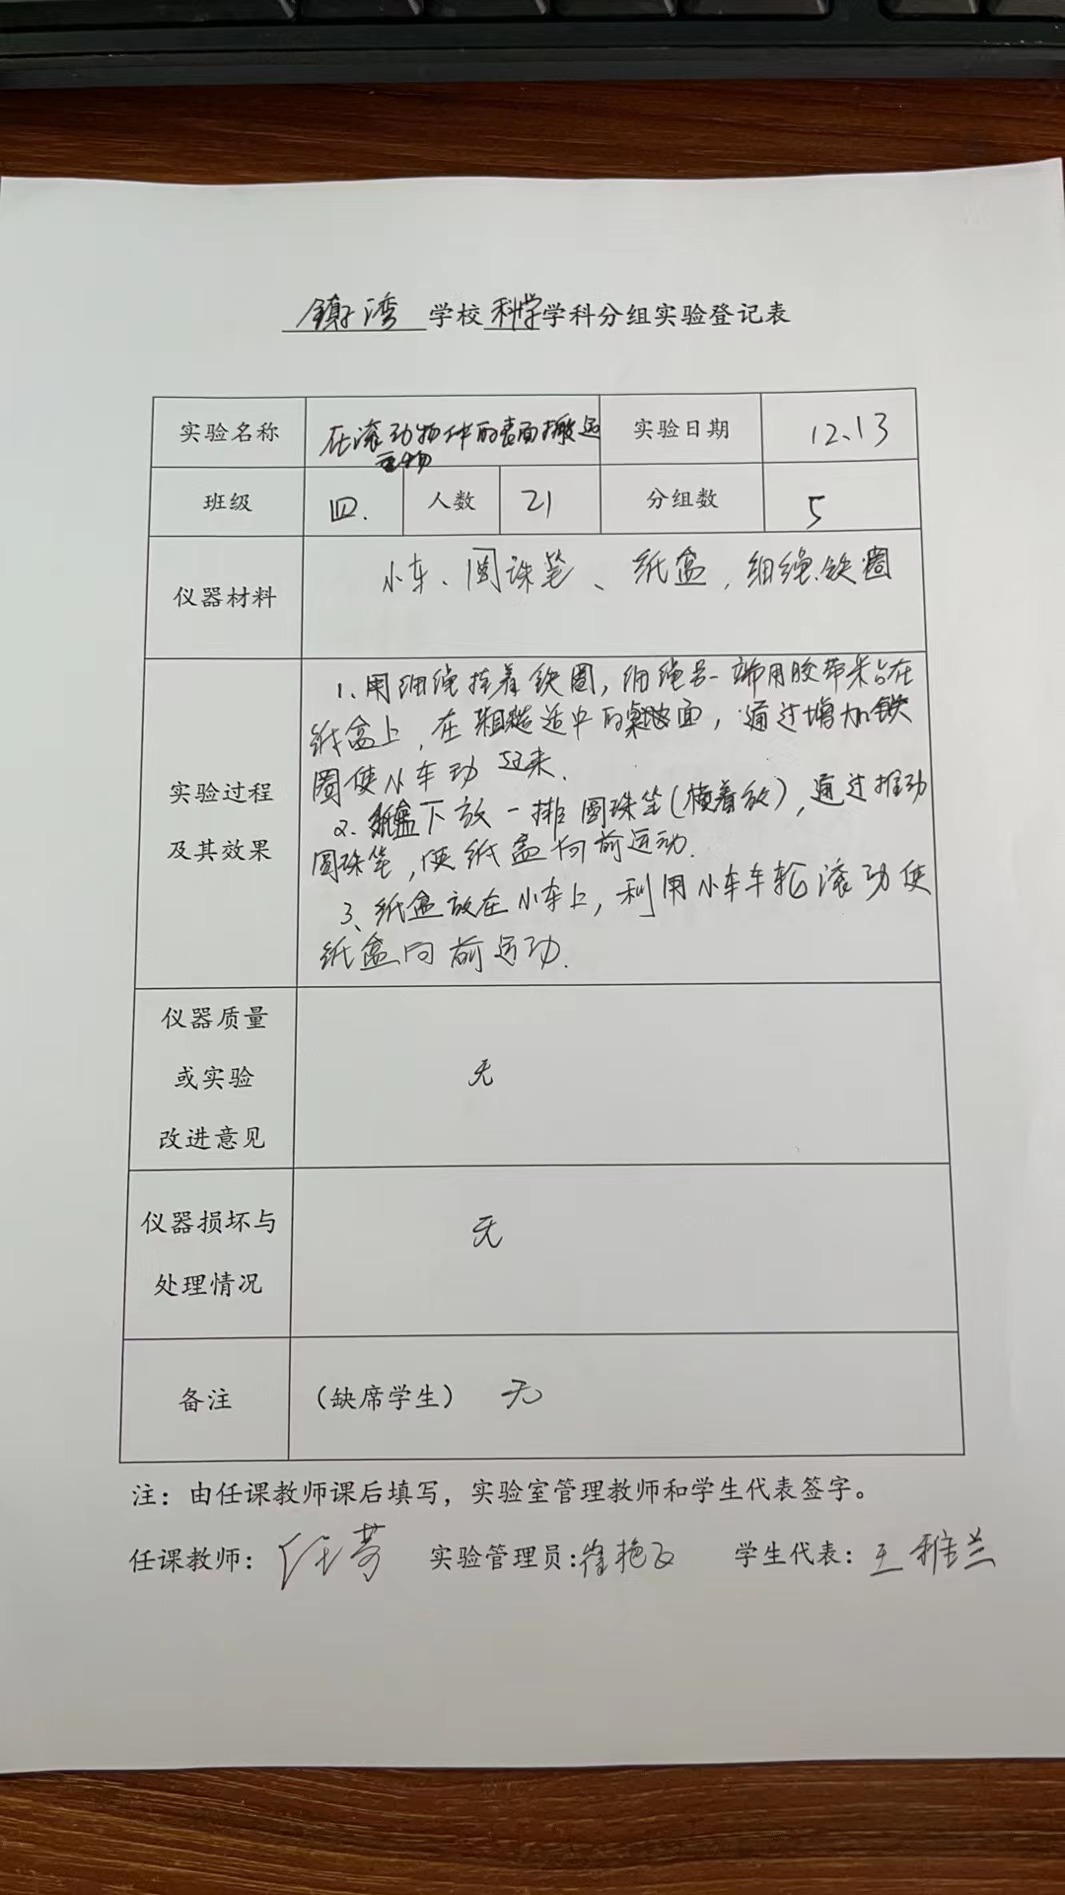 镇湾学校科学学科分组实验登记表
实验名称 在滚动物体的表面搬运重物 实验日期 12.13
班级 四. 人数 21 分组数 5
仪器材料 小车、圆珠笔、纸盒,细绳.铁圈
实验过程及其效果
1、用细绳挂着铁圈,细绳另一端用胶带粘在
纸盒上,在粗糙适中的桌面,通过增加铁
圈使小车动起来.
2.纸盒下放一排圆珠笔(横着放),通过推动
圆珠笔,使纸盒向前运动.
3、纸盒放在小车上,利用小车车轮滚动使
纸盒向前运动.
仪器质量或实验改进意见 无
仪器损坏与处理情况 无
备注 (缺席学生) 无
注:由任课教师课后填写,实验室管理教师和学生代表签字。
任课教师:任芳 实验管理员:崔艳 学生代表:王雅兰